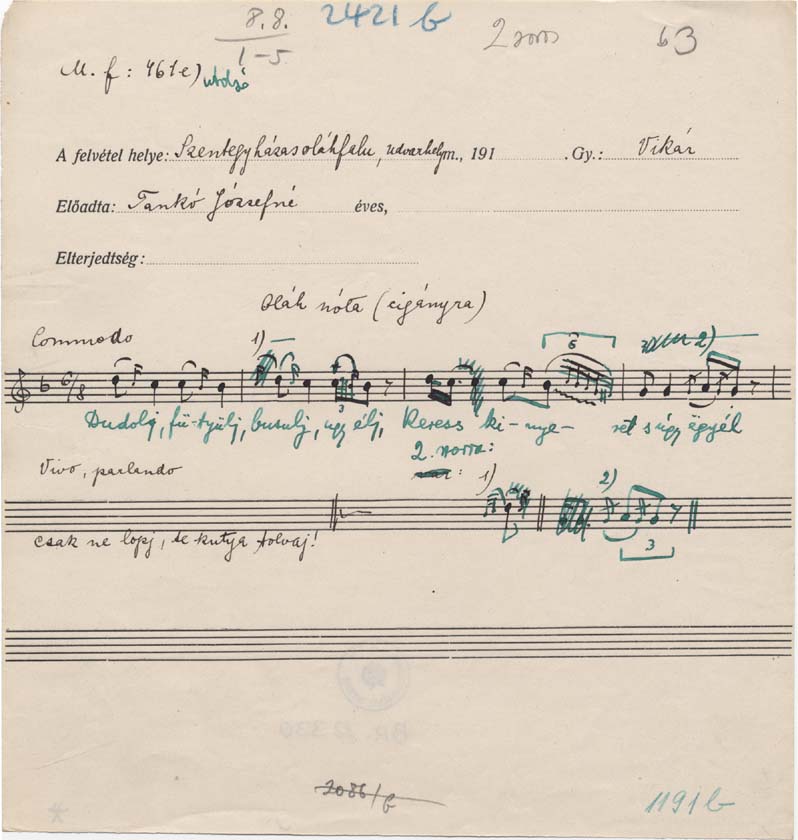 8.8. 2421 b 2 soros b3
1-5
M. f: 461e) utolsó
A felvétel helye: Szentegyházasoláhfalu, udvarhelym., 191 . Gy.: Vikár
Előadta: Tankó Józsefné éves,
Elterjedtség:
Oláh nóta (cigányra)
Commodo 1) 6 2)
6/8
3
Dudolj, fü-tyülj, busulj, ugy élj, Keress ki-nye- ret s úgy egyél
2. sorra:
Vivo, parlando 1) 2)
csak ne lopj, te kutya tolvaj!
3
BR. 12330
2086/b
1191 b